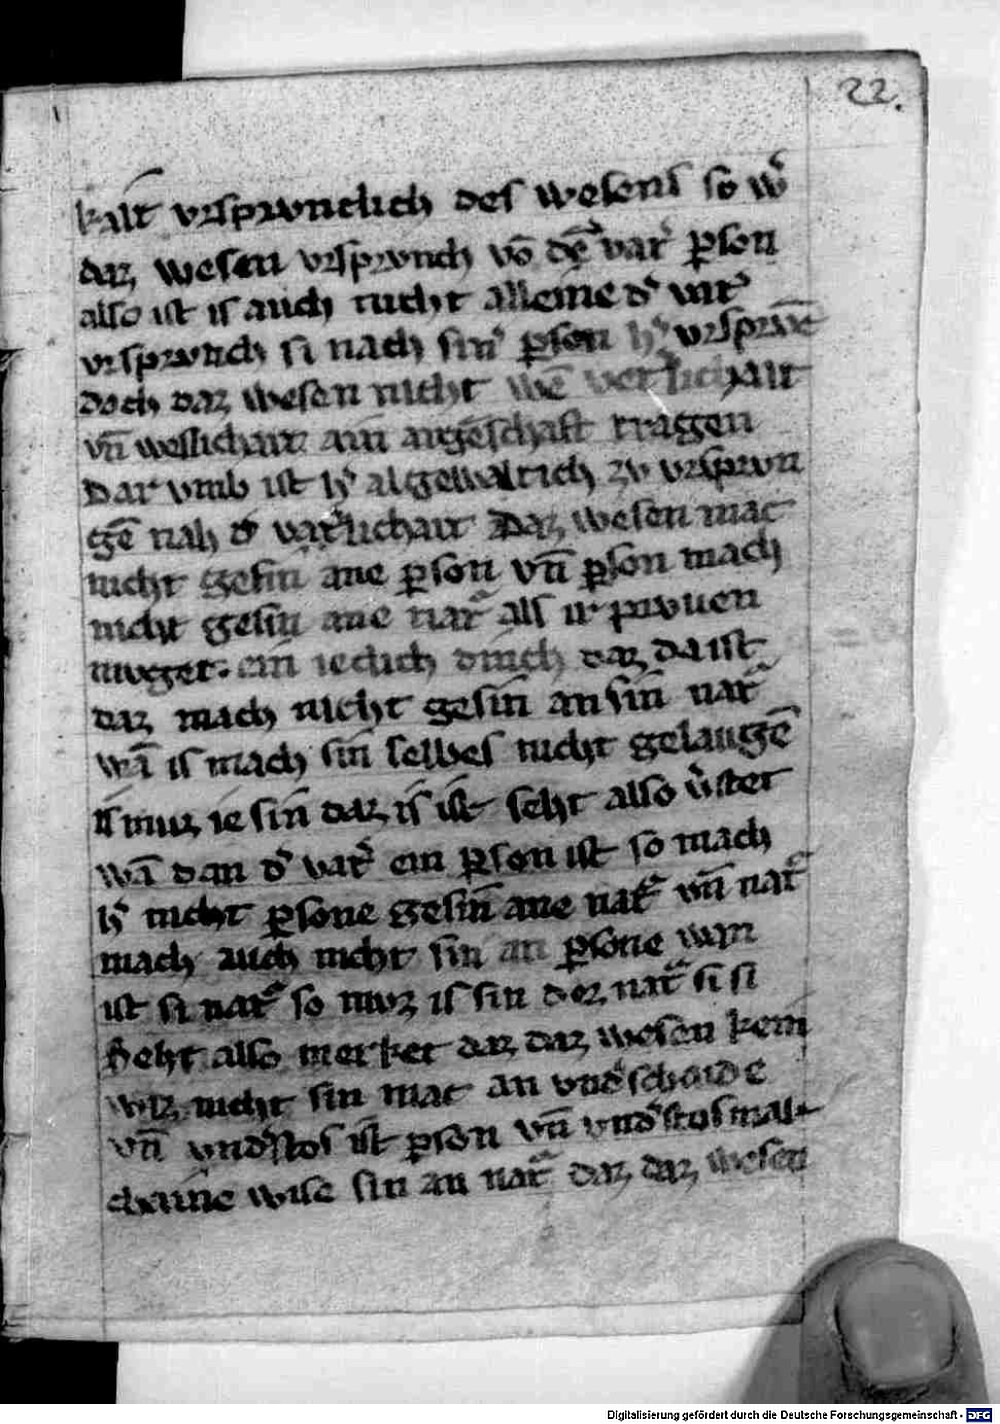 22.
kait vrsprunclich des wesens so w̓
daz wesen vrsprunch vō dē vat̓ p̱son
also ist is auch nicht alleine d̓ vat̓
vrsprunch si nach sin̓ p̱son h̓ vrsprūc
doch daz wesen nicht wē vet̓lichait
vn̄ weslichait ain aigēschaft traggen
Dar vmb ist h̓ algewaltich zv vrsprvn
gē nah d̓ vat̓lichait Daz wesen mac
nicht gesin ane p̱son vn̄ p̱son mach
nicht gesin ane nat̓ als ir pruuen
muget. ein ieclich dinch daz da ist
daz mach nicht gesin an sin nat̓
wā is mach sin selbes nicht gelaugē
is muz ie sin daz is ist seht also v̓stet
wā dan d̓ vat̓ ein p̱son ist so mach
h̓ nicht p̱sone gesin ane nat̓ vn̄ nat̓
mach auch nicht sin an p̱sone wan
ist si nat̓ so muz is sin dez nat̓ si si
Seht also merket daz daz wesen kein
wiz nicht sin mac an vnd̓schaide
vn̄ vnd̓stos ist p̱son vn̄ vnd̓stos mac
chaine wise sin an nat̓ daz daz wesen
Digitalisierung gefördert durch die Deutsche Forschungsgemeinschaft - DFG